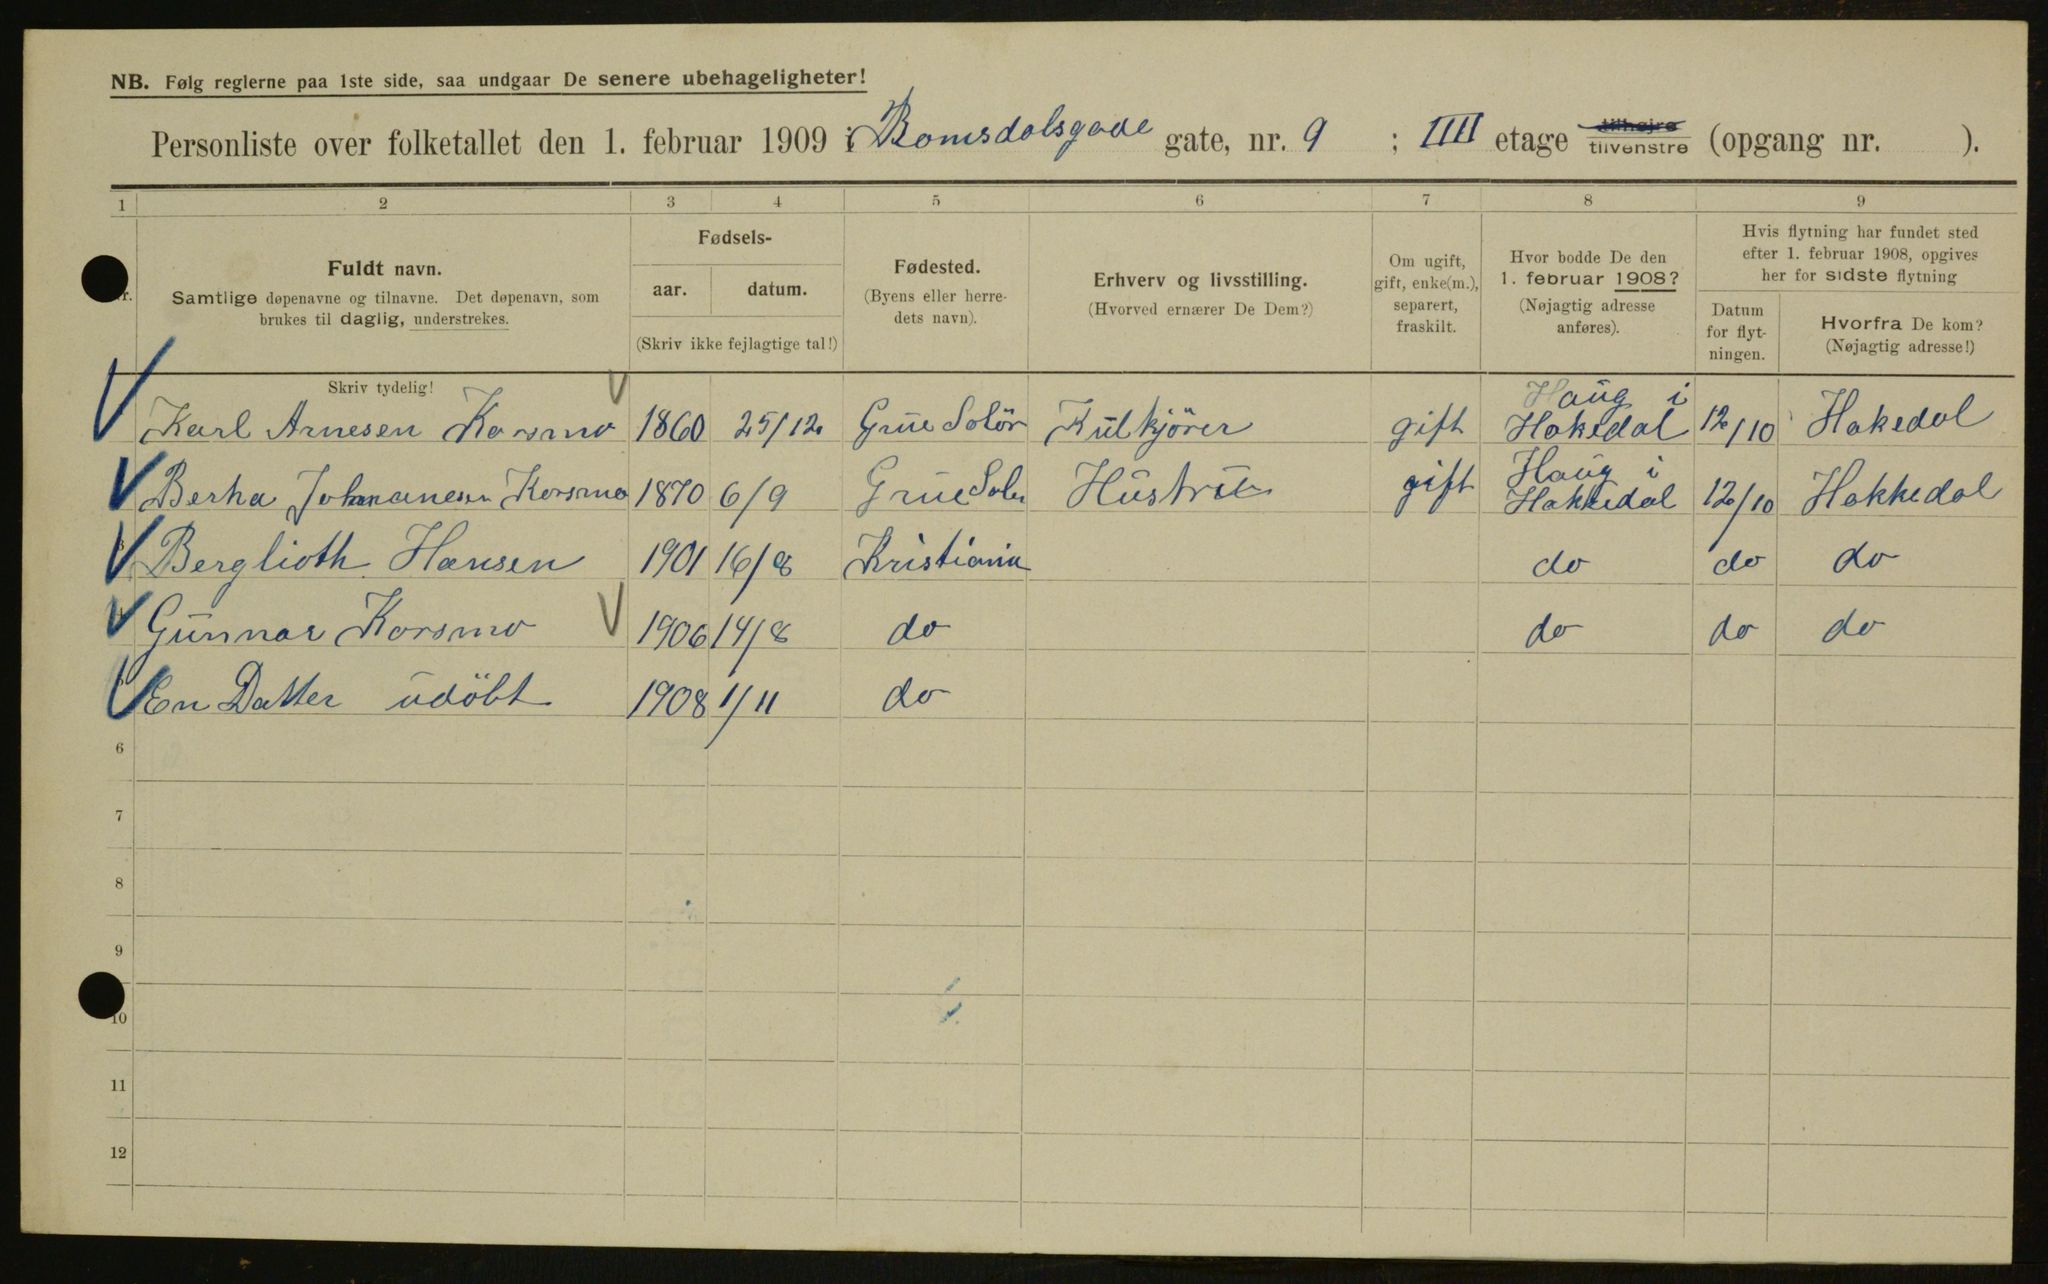 NB. Følg reglerne paa 1ste side, saa undgaar De senere ubehageligheter!
Personliste over folketallet den 1. februar 1909 i Romsdalsgade gate, nr. 9 ; IIII etage tilhøjre tilvenstre (opgang nr. ).
1 2 3 4 5 6 7 8 9
Nr.
Fuldt navn.
Samtlige døpenavne og tilnavne. Det døpenavn, som
brukes til daglig, understrekes.
Skriv tydelig!
Fødsels-
aar. datum.
(Skriv ikke fejlagtige tal!)
Fødested.
(Byens eller herre-
dets navn).
Erhverv og livsstilling.
(Hvorved ernærer De Dem?)
Om ugift,
gift, enke(m.),
separert,
fraskilt.
Hvor bodde De den
1. februar 1908?
(Nøjagtig adresse
anføres).
Hvis flytning har fundet sted
efter 1. februar 1908, opgives
her for sidste flytning
Datum
for flyt-
ningen.
Hvorfra De kom?
(Nøjagtig adresse!)
Karl Arnesen Korsmo 1860 25/12 Grue Solör Kulkjörer gift Haug i Hakedal 12/10 Hakedal
Berha Johanesen Korsmo 1870 6/9 Grue Solør Hustru gift Haug i Hakkedal 12/10 Hakkedal
3 Berglioth Hansen 1901 16/8 Kristiania do do do
4 Gunnar Korsmo 1906 14/8 do do do do
5 En Datter udöbt 1908 1/11 do
6
7
8
9
10
11
12